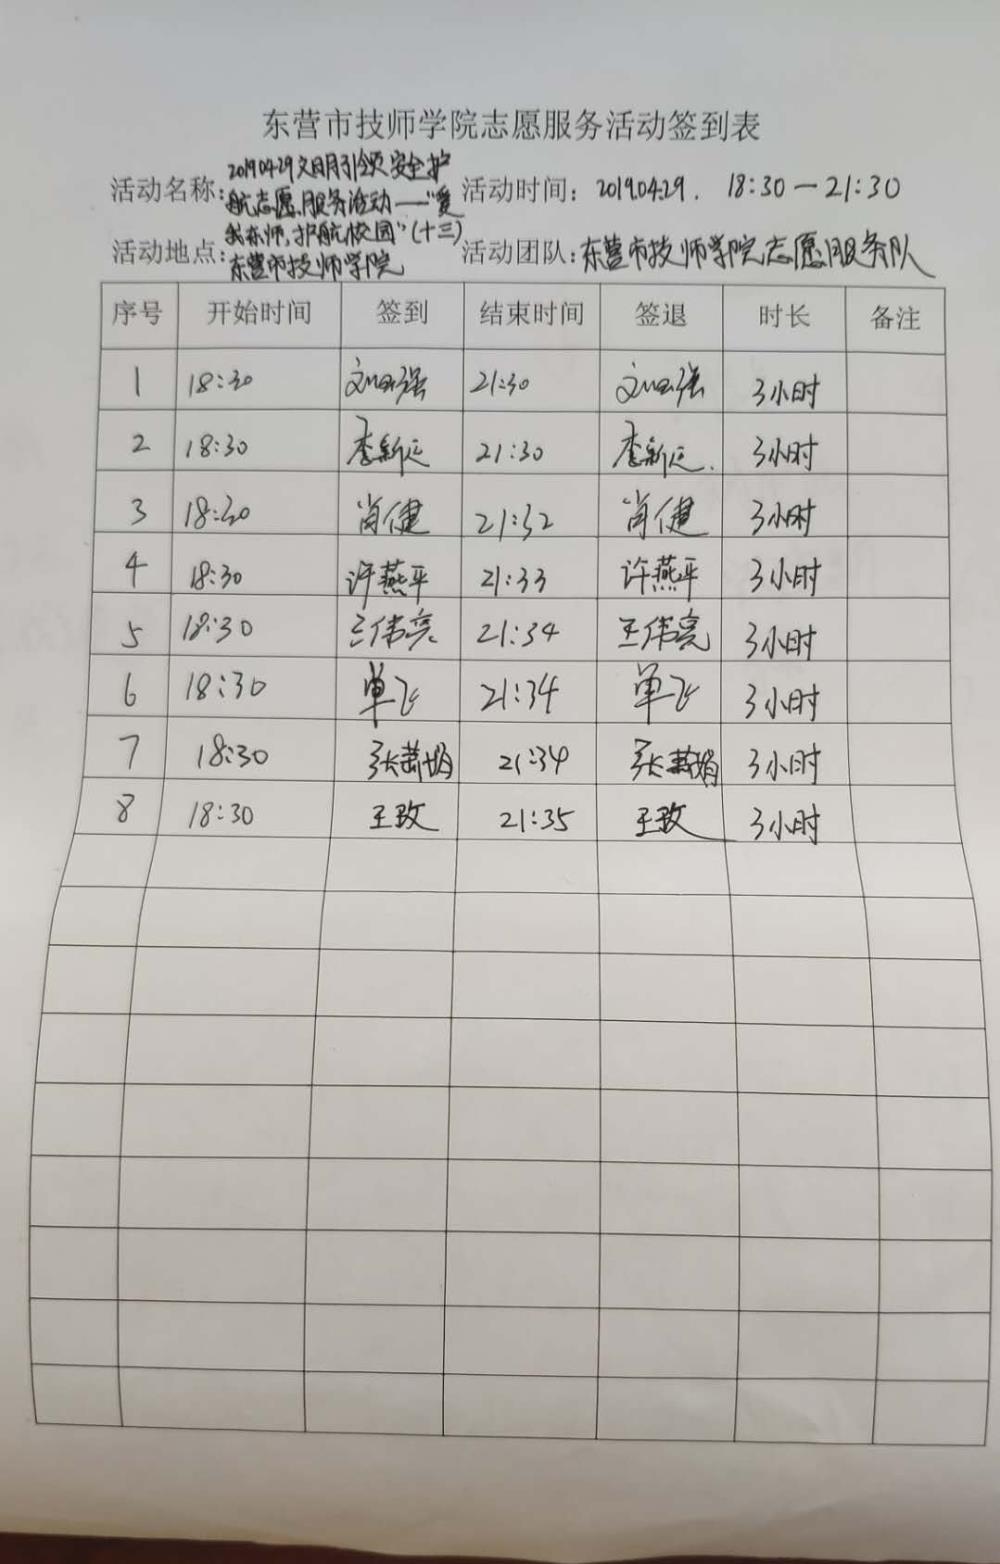 东营市技师学院志愿服务活动签到表
活动名称：20190429文明引领安全护航志愿服务活动——“爱我东师，护航校园”（十三） 活动时间：2019.04.29. 18:30—21:30
活动地点：东营市技师学院 活动团队：东营市技师学院志愿服务队
序号 开始时间 签到 结束时间 签退 时长 备注
1 18:30 21:30 3小时
2 18:30 李新 21:30 李新 3小时
3 18:30 肖健 21:32 肖健 3小时
4 18:30 许燕平 21:33 许燕平 3小时
5 18:30 王伟亮 21:34 王伟亮 3小时
6 18:30 单飞 21:34 单飞 3小时
7 18:30 张 娟 21:34 张 娟 3小时
8 18:30 王玫 21:35 王玫 3小时